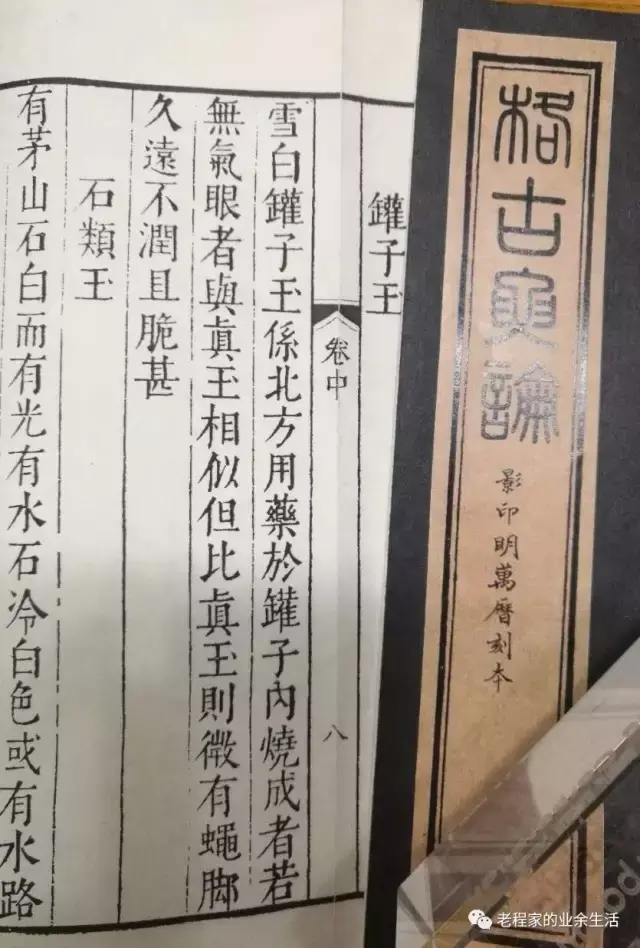 格古要論
影印明萬曆刻本
罐子玉
卷中
八
雪白罐子玉係北方用藥於罐子內燒成者若
無氣眼者與眞玉相似但比眞玉則微有蠅脚
久遠不潤且脆甚
石類玉
有茅山石白而有光有水石冷白色或有水路
老程家的业余生活